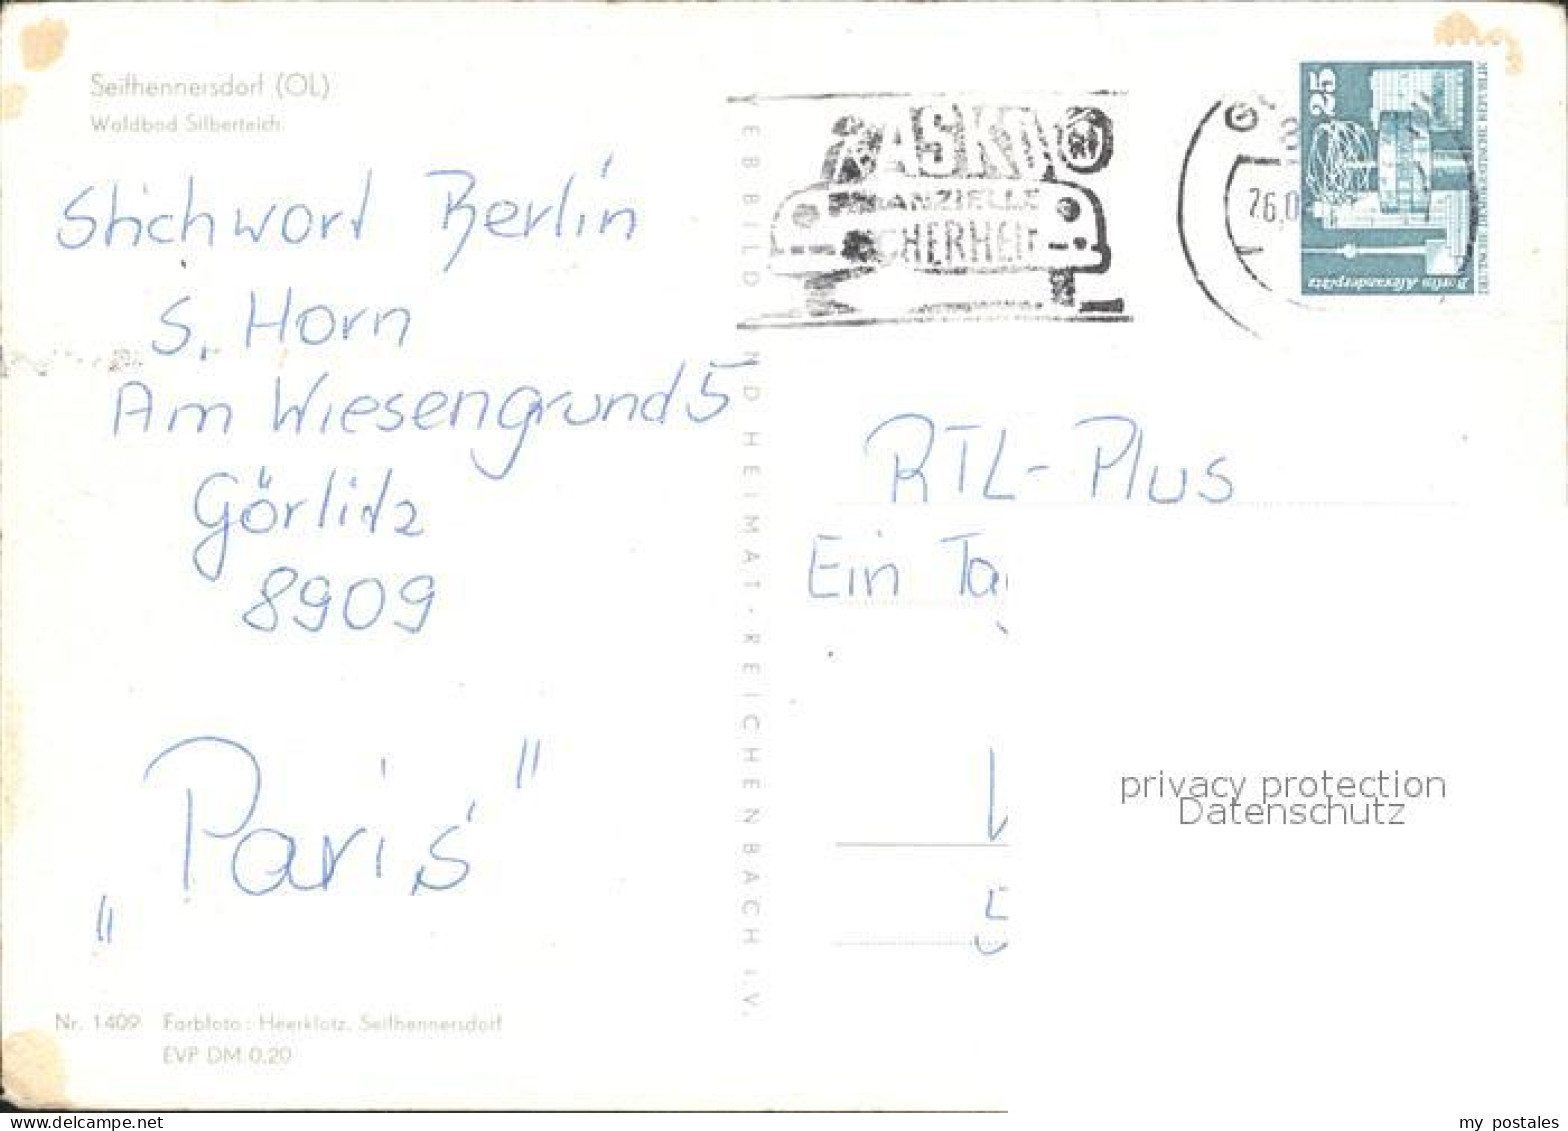 Seifhennersdorf (OL)
Waldbad Silberteich
Stichwort Berlin
S. Horn
Am Wiesengrund 5
Görlitz
8909
"Paris"
Nr. 1409 Farbfoto: Heerklotz, Seifhennersdorf
EVP DM 0,20
VEB BILD ND HEIMAT · REICHENBACH i.V.
KASKO
FINANZIELLE
SICHERHEIT
26.0
25
Berlin Alexanderplatz
DEUTSCHE DEMOKRATISCHE REPUBLIK
RTL-Plus
Ein Ta
privacy protection
Datenschutz
my postales